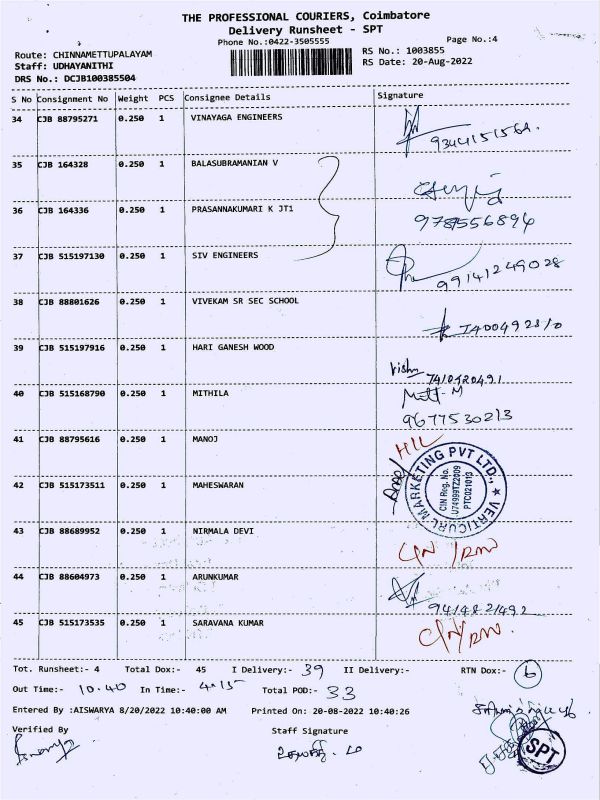 THE PROFESSIONAL COURIERS, Coimbatore
Delivery Runsheet - SPT
Phone No.:0422-3505555
Page No.:4
Route: CHINNAMETTUPALAYAM
RS No.: 1003855
Staff: UDHAYANITHI
RS Date: 20-Aug-2022
DRS No.: DCJB100385504
S No Consignment No Weight PCS Consignee Details Signature
34 CJB 88795271 0.250 1 VINAYAGA ENGINEERS
9344151562.
35 CJB 164328 0.250 1 BALASUBRAMANIAN V
36 CJB 164336 0.250 1 PRASANNAKUMARI K JT1
37 CJB 515197130 0.250 1 SIV ENGINEERS
99141249028
38 CJB 88801626 0.250 1 VIVEKAM SR SEC SCHOOL
39 CJB 515197916 0.250 1 HARI GANESH WOOD
40 CJB 515168790 0.250 1 MITHILA
9677530213
41 CJB 88795616 0.250 1 MANOJ
H/L
VERTICURL MARKETING PVT LTD.,
CIN Reg. No.
U74999TZ2009
PTC021013
42 CJB 515173511 0.250 1 MAHESWARAN
43 CJB 88689952 0.250 1 NIRMALA DEVI
44 CJB 88604973 0.250 1 ARUNKUMAR
9414821492
45 CJB 515173535 0.250 1 SARAVANA KUMAR
Tot. Runsheet:- 4 Total Dox:- 45 I Delivery:- 39 II Delivery:- RTN Dox:- 6
Out Time:- 10.40 In Time:- 4.15 Total POD:- 33
Entered By :AISWARYA 8/20/2022 10:40:00 AM Printed On: 20-08-2022 10:40:26
Verified By Staff Signature
SPT